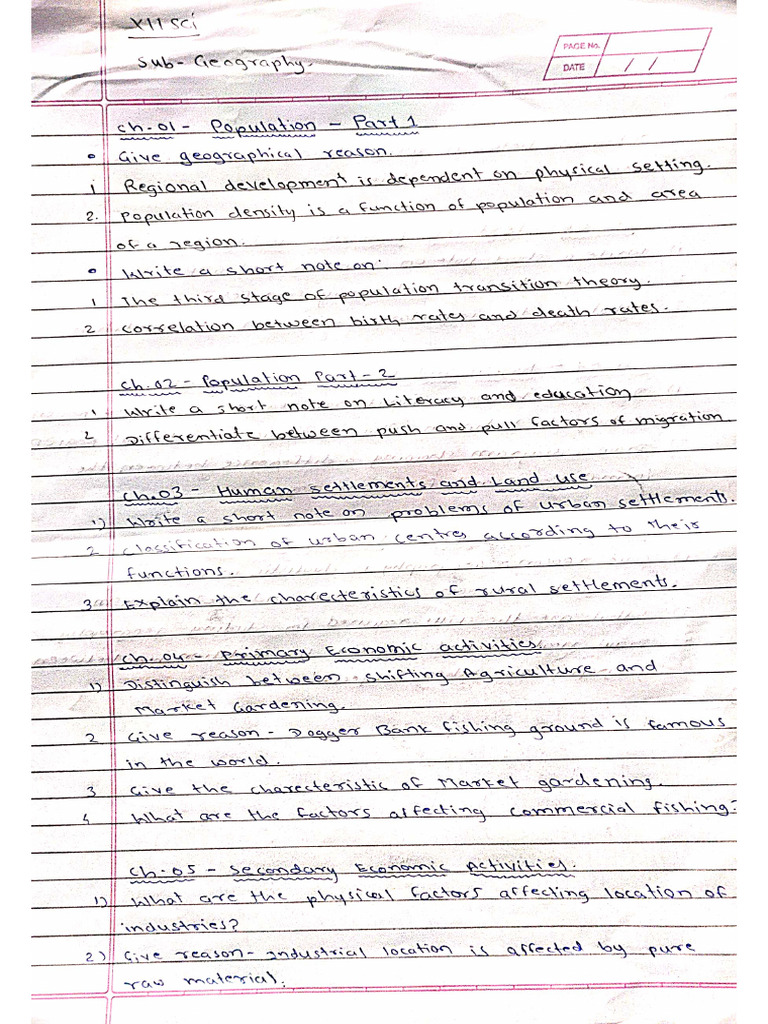 XII Sci
Sub- Geography.
PAGE No.
DATE / /
Ch.01 - Population - Part 1
• Give geographical reason.
1 Regional development is dependent on physical setting.
2. Population density is a function of population and area
of a region.
• Write a short note on:
1 The third stage of population transition theory.
2 Correlation between birth rates and death rates.
Ch.02 - Population Part - 2
1 Write a short note on Literacy and education
2 Differentiate between push and pull factors of migration
Ch.03 - Human settlements and Land use
1) Write a short note on problems of urban settlements.
2 Classification of urban centres according to their
functions.
3 Explain the charecteristics of rural settlements.
Ch.04 - Primary Economic activities.
1) Distinguish between Shifting Agriculture and
Market Gardening.
2 Give reason - Dogger Bank fishing ground is famous
in the world.
3 Give the charecteristic of Market gardening.
4 What are the factors affecting commercial fishing?
Ch.05 - Secondary Economic Activities.
1) What are the physical factors affecting location of
industries?
2) Give reason - Industrial location is affected by pure
raw material.